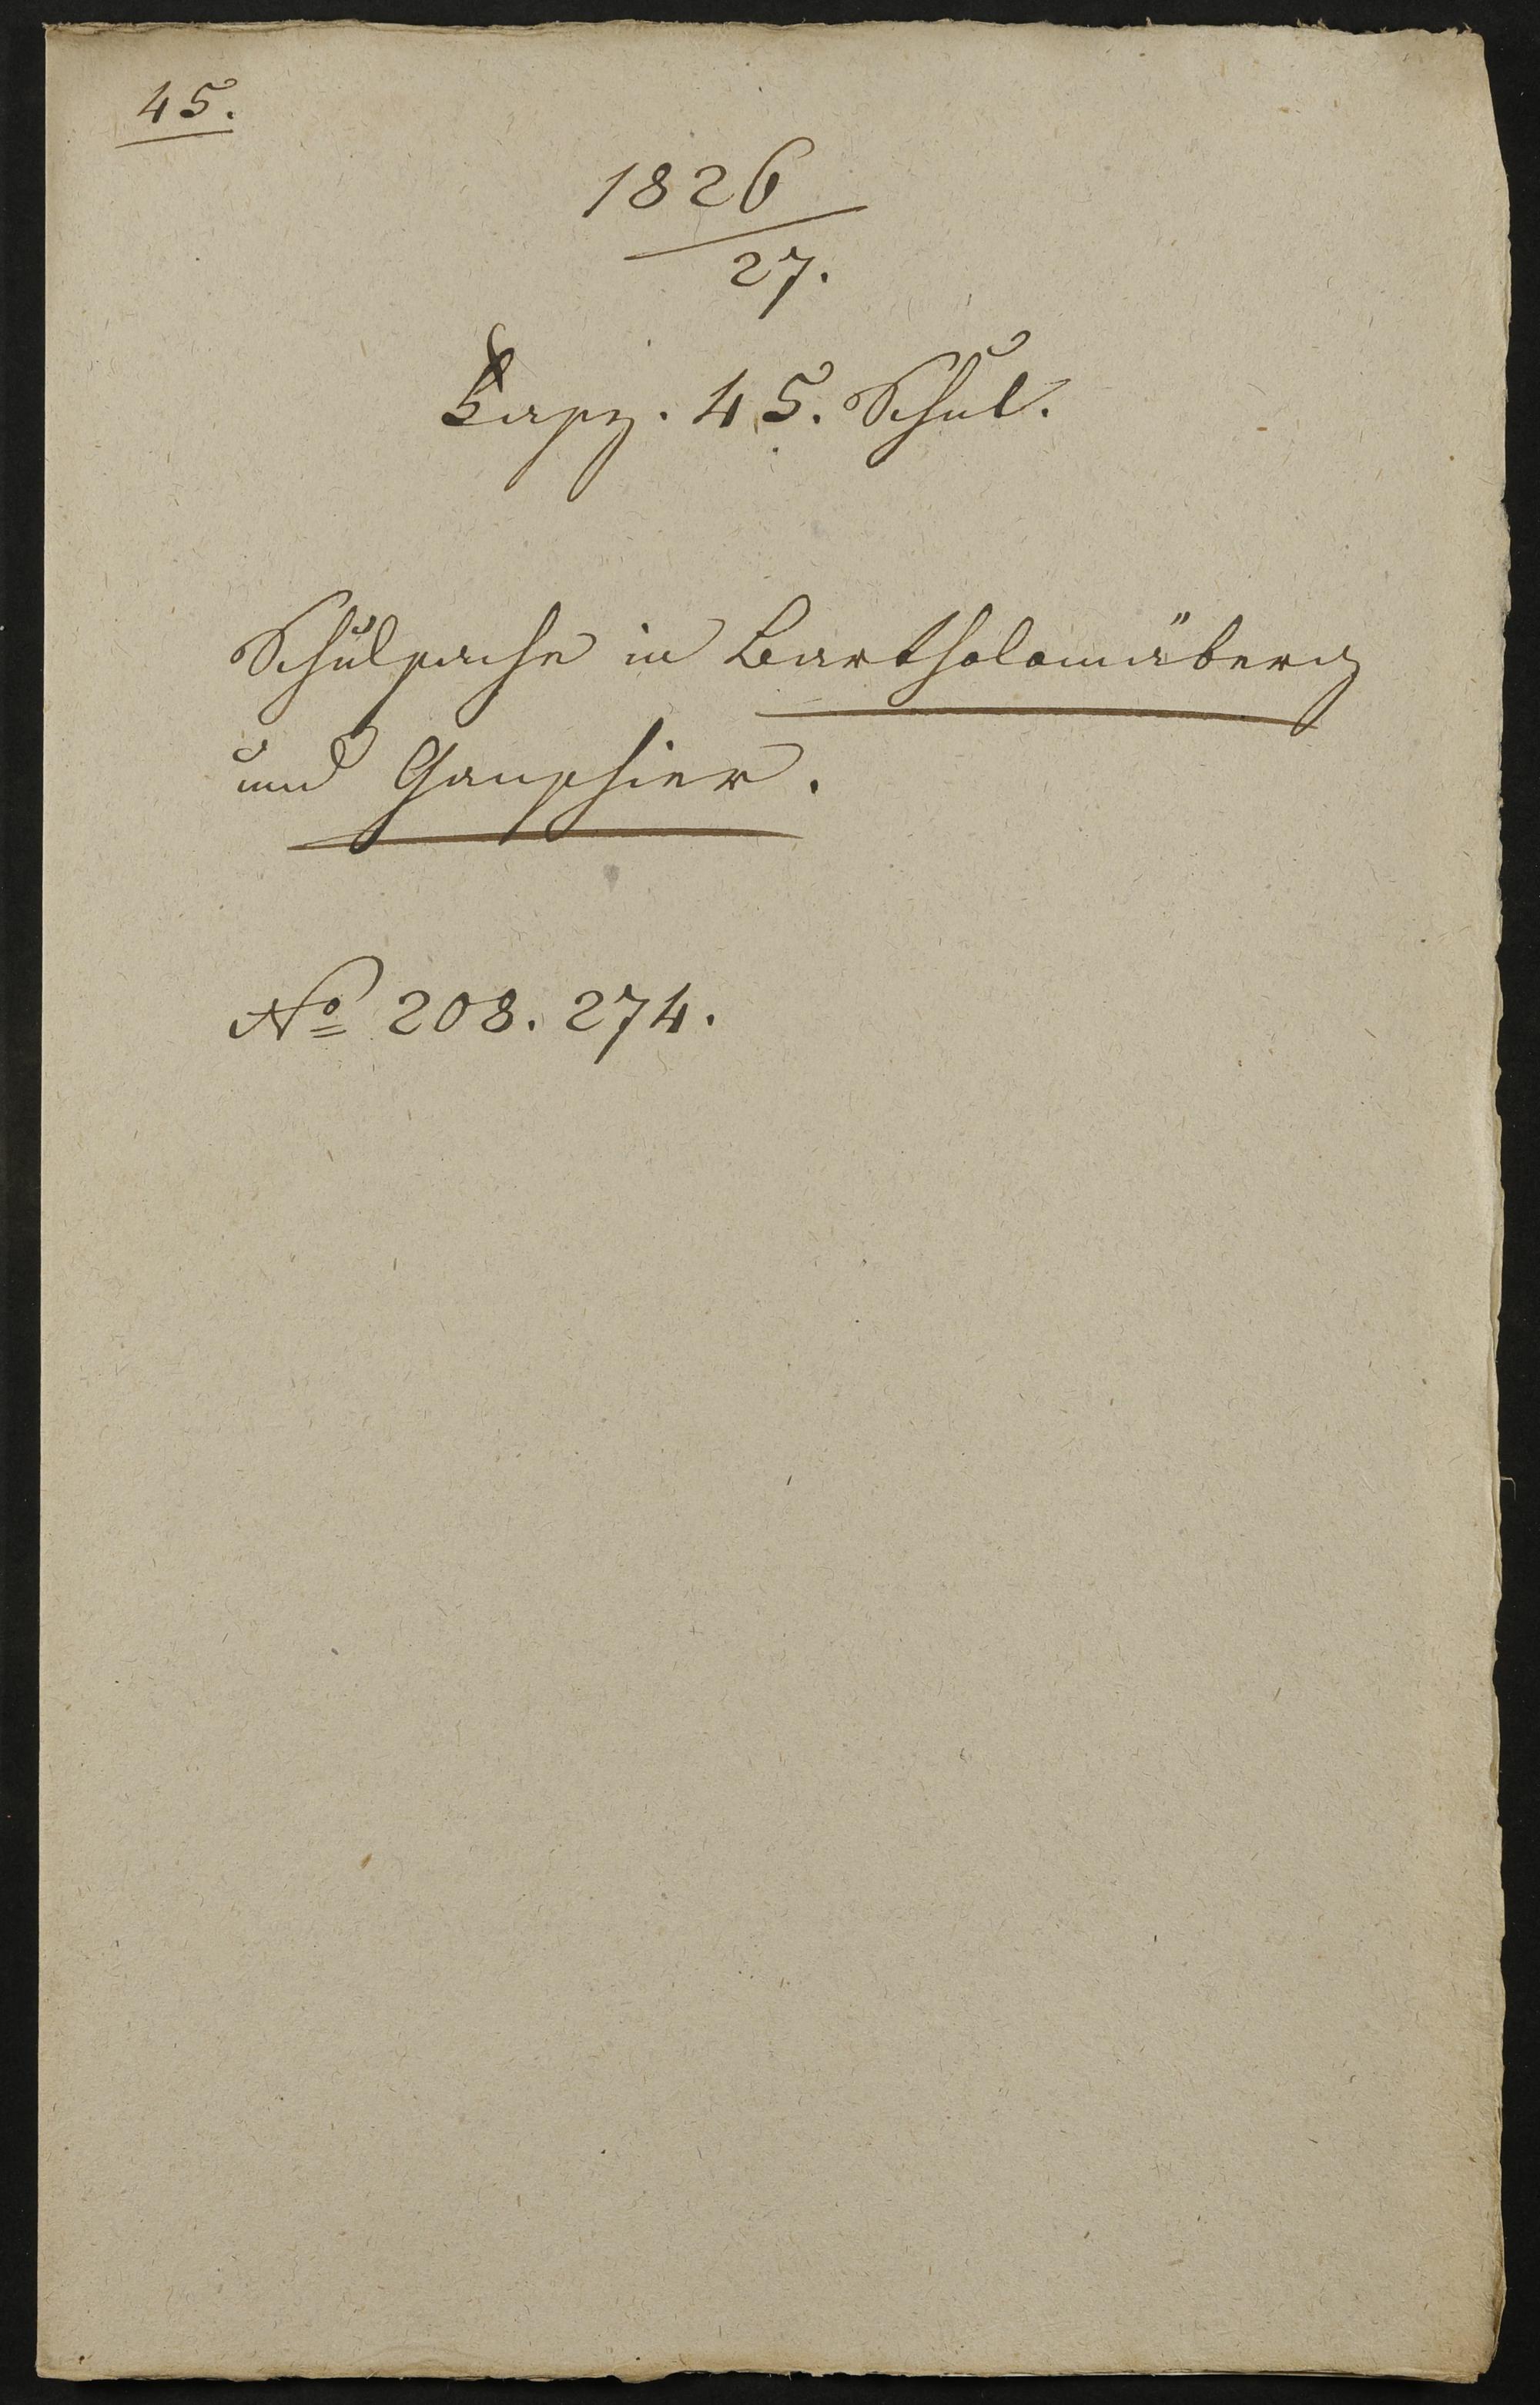 45.
1826
27.
Fasz. 45. Schul.
Schulsache in Bartholomäberg
und Ganschier.
No 208. 274.